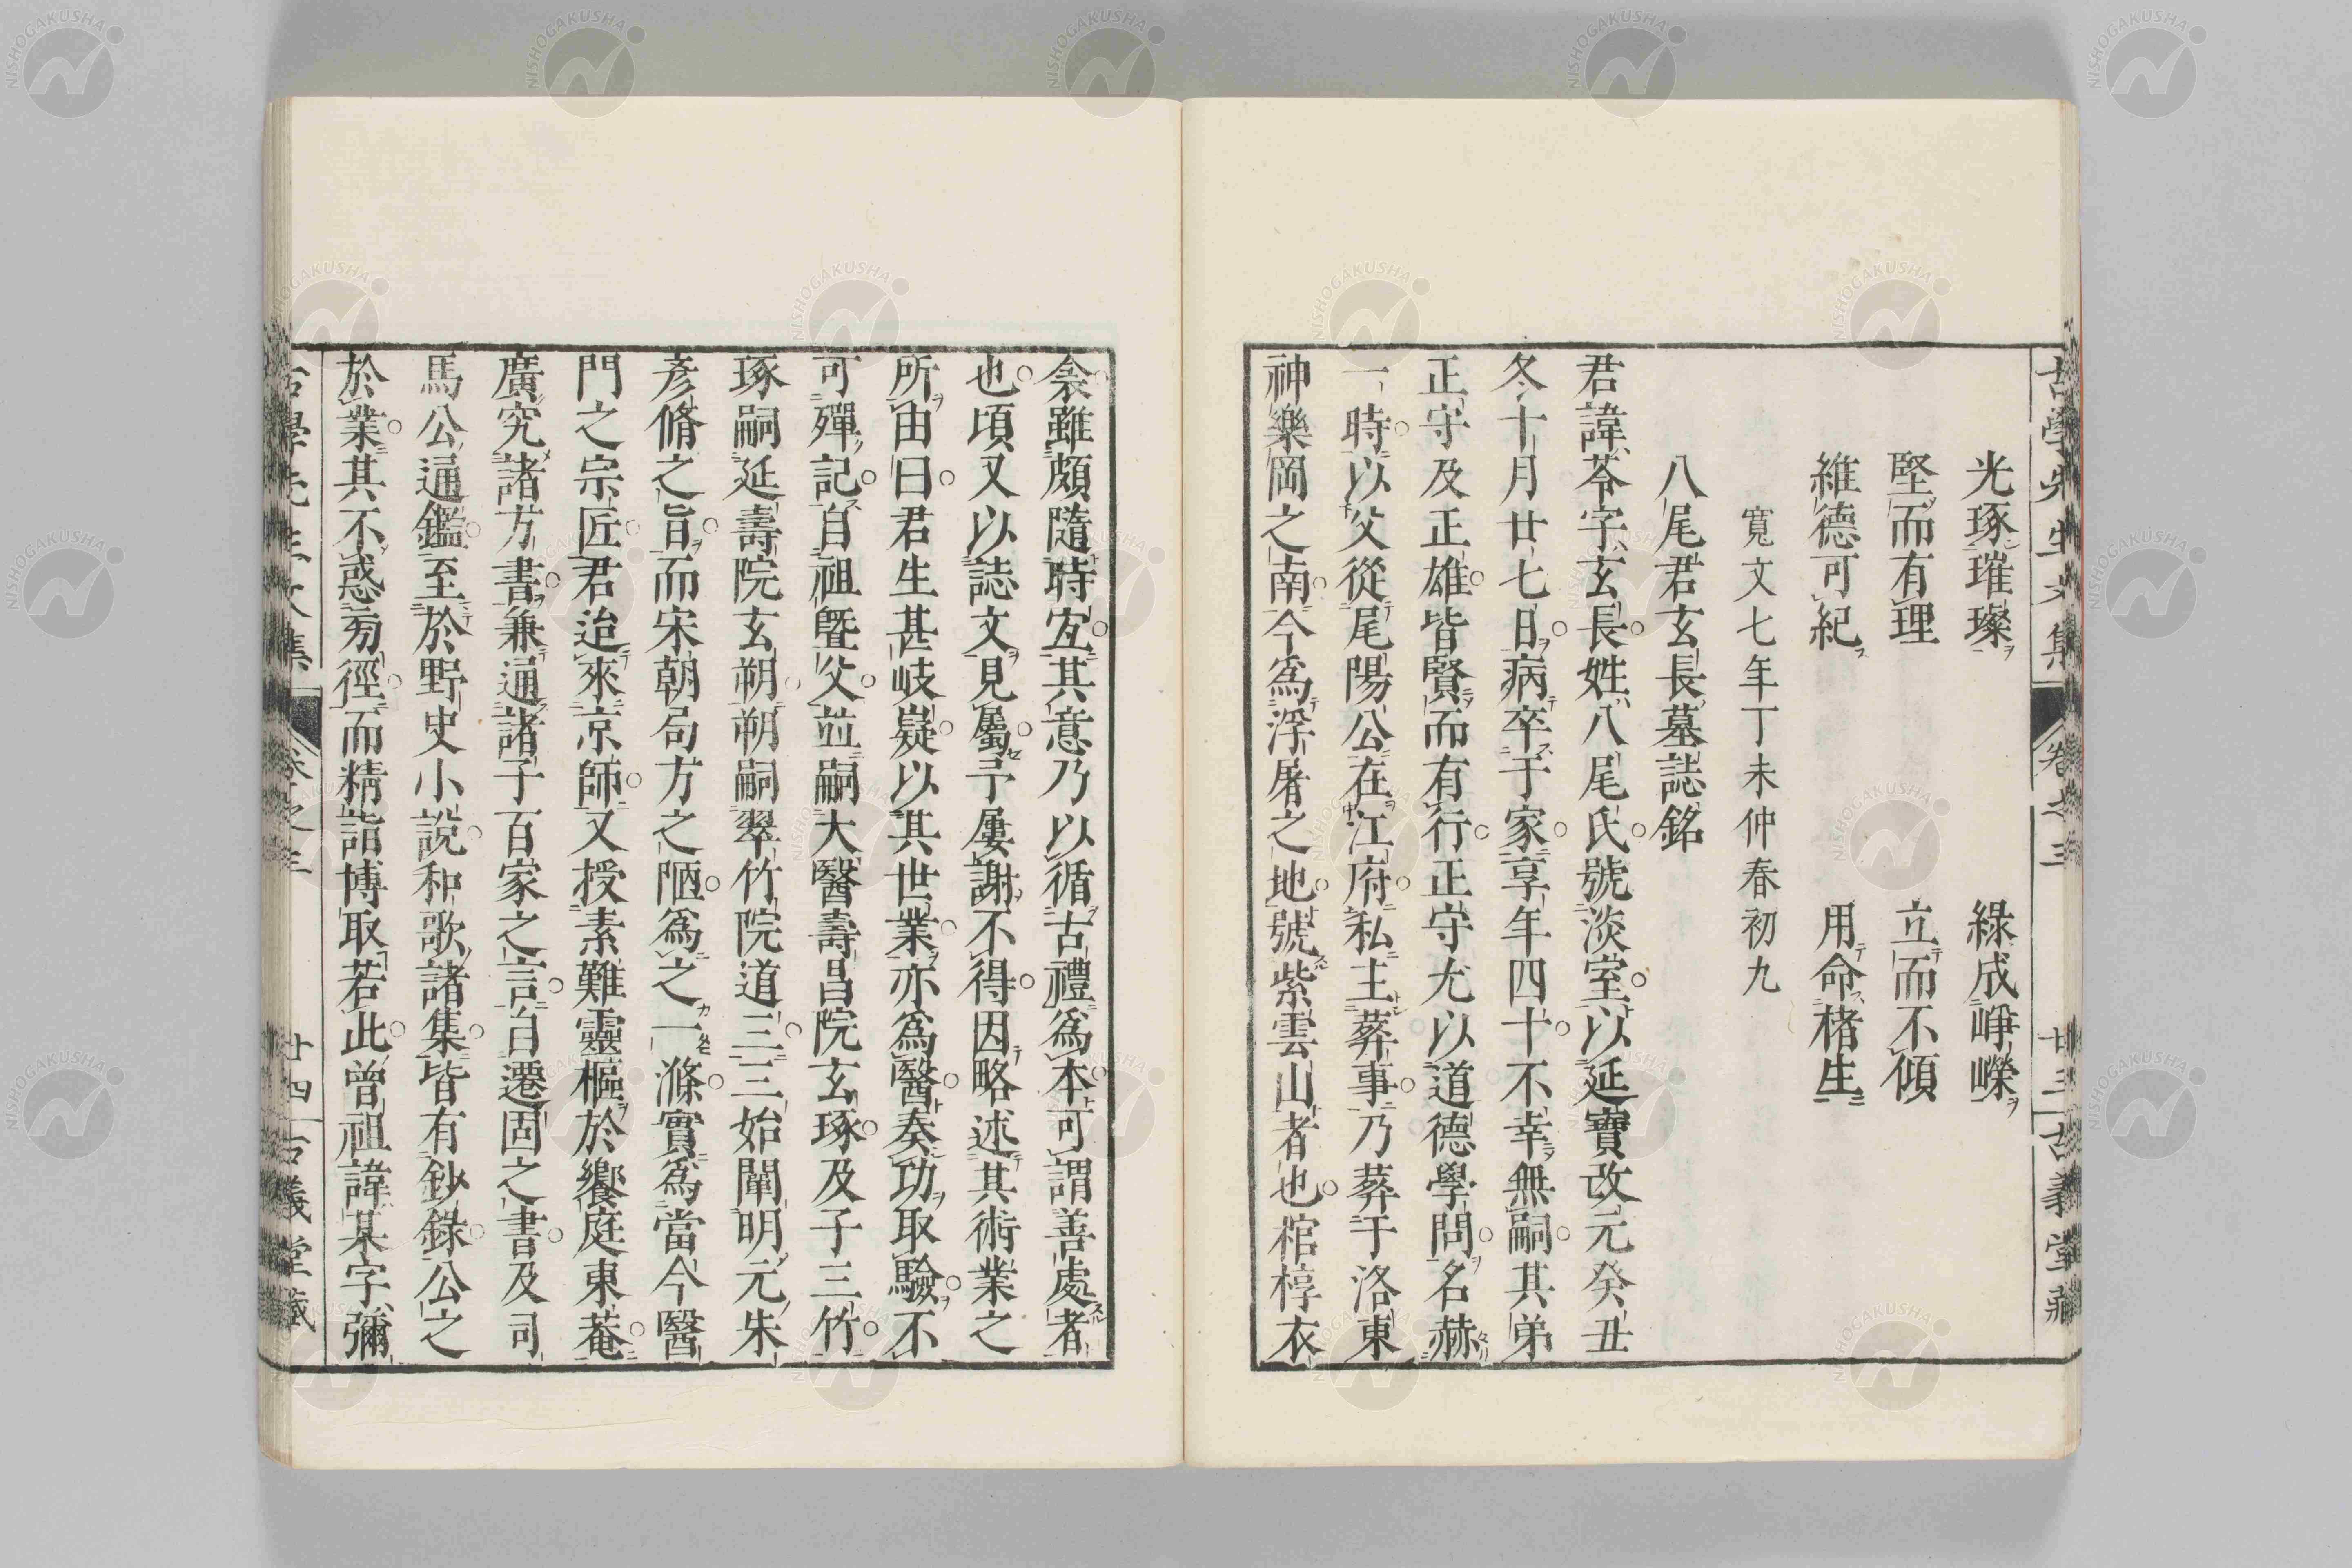 古學先生文集 卷之三 廿三 古義堂藏
光琢璀璨 綠成崢嶸
堅而有理 立而不傾
維德可紀 用命楮生
寬文七年丁未仲春初九
八尾君玄長墓誌銘
君諱苓字玄長姓八尾氏號淡室以延寶改元癸丑
冬十月廿七日病卒于家享年四十不幸無嗣其弟
正守及正雄皆賢而有行正守尤以道德學問名赫
一時以父從尾陽公在江府私主葬事乃葬于洛東
神樂岡之南今爲浮屠之地號紫雲山者也棺椁衣
衾雖頗隨時宐其意乃以循古禮爲本可謂善處者
也頃又以誌文見屬予屢謝不得因略述其術業之
所由曰君生甚岐嶷以其世業亦爲醫奏功取驗不
可殫記自祖曁父並嗣大醫壽昌院玄琢及子三竹
琢嗣延壽院玄朔朔嗣翠竹院道三三始闡明元朱
彥脩之旨而宋朝局方之陋爲之一滌實爲當今醫
門之宗匠君迨來京師又授素難靈樞於饗庭東菴
廣究諸方書兼通諸子百家之言自遷固之書及司
馬公通鑑至於野史小說和歌諸集皆有鈔錄公之
於業其不惑旁徑而精詣博取若此曾祖諱某字彌
古學先生文集 卷之三 廿四 古義堂藏
NISHOGAKUSHA